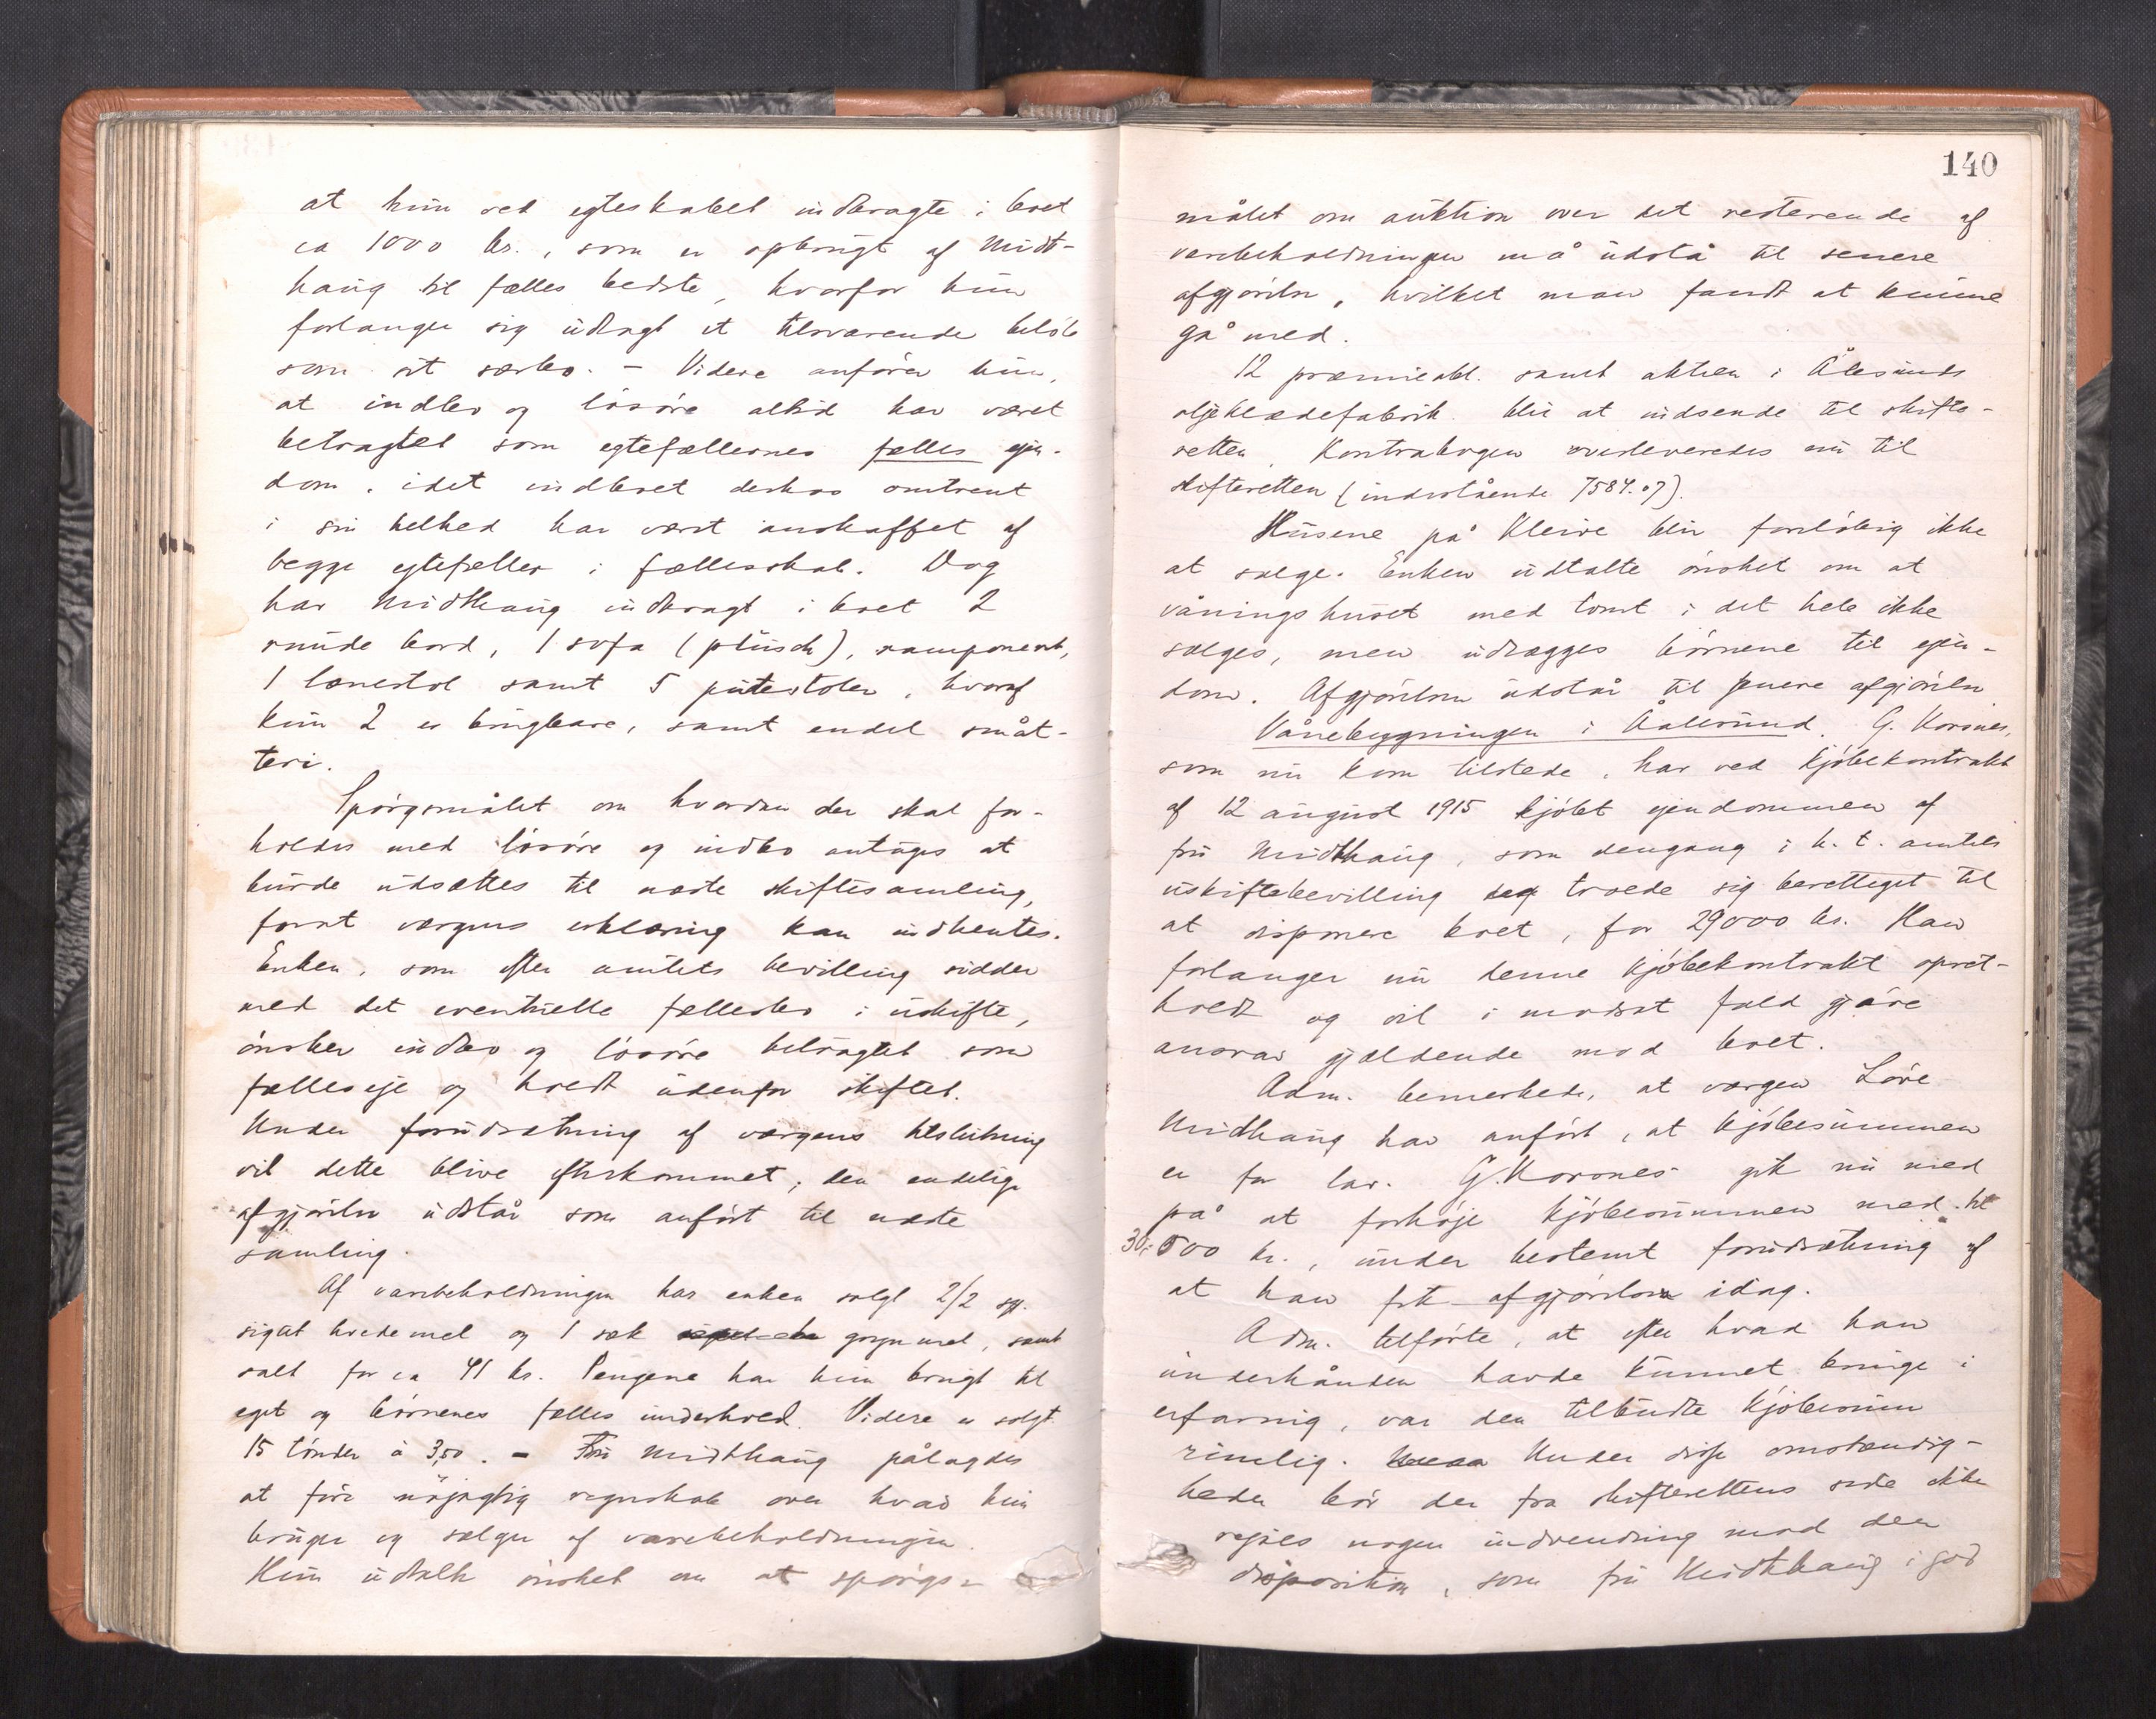 at hun ved egteskabet indbragte i boet
ca 1000 kr., som er opbrugt af Midt-
haug til fælles bedste, hvorfor hun
forlanger sig udlagt et tilsvarende beløb
som sit særbo. - Videre anfører hun,
at indbo og løsøre altid har været
betragtet som egtefællernes fælles ejen-
dom, idet indboet derhos omtrent
i sin helhed har været anskaffet af
begge egtefæller i fællesskab. Dog
har Midthaug indbragt i boet 2
runde bord, 1 sofa (plüsch), ramponert,
1 lænestol samt 5 putestoler, hvoraf
kun 2 er brugbare, samt endel småt-
teri.
Spørgsmålet om hvordan der skal for-
holdes med løsøre og indbo antages at
burde udsættes til næste skiftesamling,
forat vergens erklæring kan indhentes.
Enken, som efter amtets bevilling sidder
med det eventuelle fællesbo i uskifte,
ønsker indbo og løsøre betragtet som
fælleseje og holdt udenfor skiftet.
Under forudsætning af vergens tilslutning
vil dette blive efterkommet; den endelige
afgjørelse udstår som anført til næste
samling.
Af varebeholdningen har enken solgt 2/2 sk.
sigtet hvedemel og 1 sæk grynmel, samt
salt for ca 41 kr. Pengene har hun brugt til
eget og børnenes fælles underhold. Videre er solgt
15 tønder à 3,50. - Fru Midthaug pålagdes
at føre nøjagtig regnskab over hvad hun
bruger og sælger af varebeholdningen.
Hun udtalte ønsket om at spørgs-
140
målet om auktion over det resterende af
varebeholdningen må udstå til senere
afgjørelse, hvilket man fandt at kunne
gå med.
12 præmieobl. samt aktien i Ålesunds
oljeklædefabrik blir at indsende til skifte-
retten. Kontrabogen overleveredes nu til
skifteretten (indestående 7584.07).
Husene på Kleive blir foreløbig ikke
at sælge. Enken udtalte ønsket om at
våningshuset med tomt i det hele ikke
sælges, men udlægges børnene til ejen-
dom. Afgjørelsen udstår til senere afgjørelse.
Vånebygningen i Aalesund. G. Korsnes,
som nu kom tilstede, har ved kjøbekontrakt
af 12 august 1915 kjøbt ejendommen af
fru Midthaug, som dengang i h. t. amtets
uskiftebevilling troede sig berettiget til
at disponere boet, for 29000 kr. Han
forlanger nu denne kjøbekontrakt opret-
holdt og vil i modsat fald gjøre
ansvar gjældende mod boet.
Adm. bemerkede, at vergen Løve
Midthaug har anført, at kjøbesummen
er for lav. G. Korsnes gik nu med
på at forhøje kjøbesummen med til
30.500 kr., under bestemt forudsætning af
at han fik afgjørelsen idag.
Adm. tilførte, at efter hvad han
underhånden havde kunnet bringe i
erfaring, var den tilbudte kjøbesum
rimelig. Under disse omstændig-
heder bør der fra skifterettens side ikke
rejses nogen indvending mod den
disposition, som fru Midthaug i god